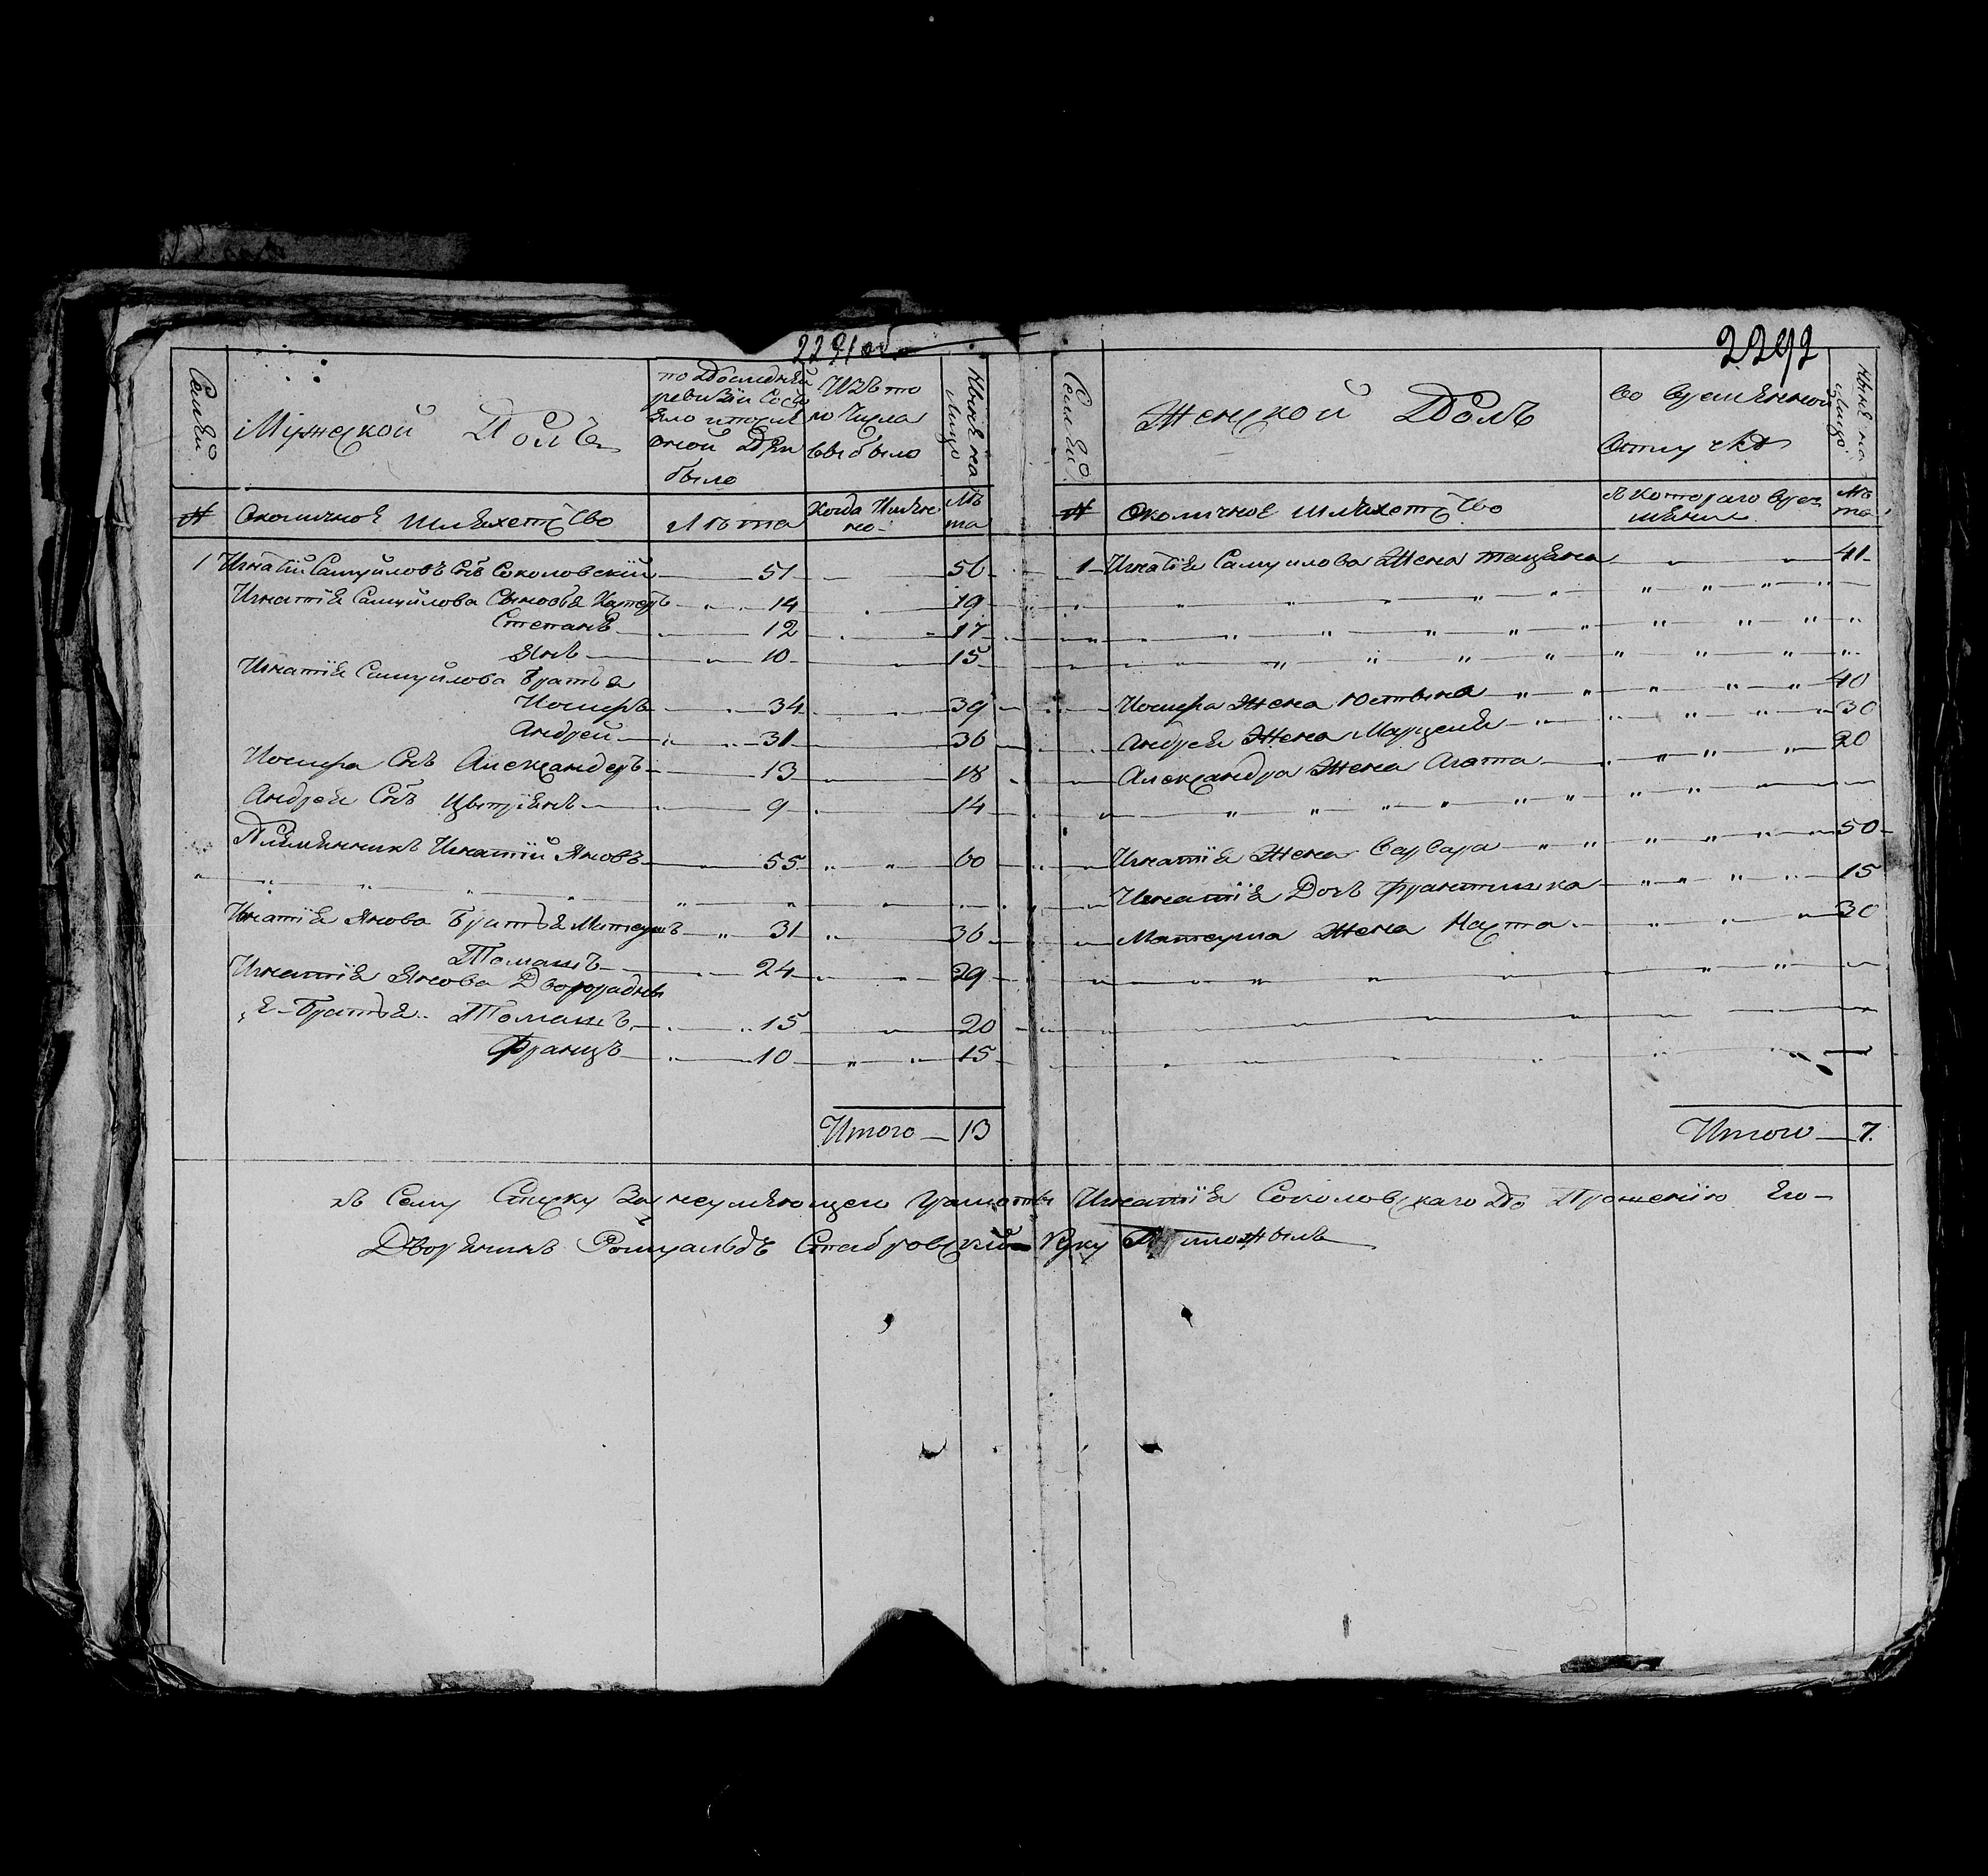 2291 об.
Семьи
Мужеской Полъ
по последней ревизии состояло и после оной прибыло
Изъ того числа выбыло
Ныне на лицо
№
Околичное шляхетство
Лѣта
Когда Именно
Лѣта
1 Игнатій Самуиловъ Сынъ Соколовскій 51 56
Игнатія Самуйлова Сыновья 14 19
Степанъ 12 17
Янъ 10 15
Игнатія Самуйлова Братья
Иосифъ 34 39
Андрей 31 36
Иосифа Сынъ Александеръ 13 18
Андрея Сынъ 9 14
Племянникъ Игнатій Яновъ 55 60
Игнатія Янова Братья Матеушъ 31 36
Томашъ 24 29
Игнатія Янова Двоюродные
Братья Томашъ 15 20
Францъ 10 15
Итого 13
2292
Семьи
Женской Полъ
Во временной отлучкѣ
Ныне на лицо
№
Околичное шляхетство
съ котораго времени
Лѣта
1 Игнатія Самуилова Жена Тацяна 41
Иосифа Жена Юстына 40
Андрея Жена Марцеля 30
Александра Жена Агата 20
Игнатія Жена Варвара 50
Игнатія Дочь Франтишка 15
Матеуша Жена Марта 30
Итого 7.
къ Сему Списку За неумеющего грамоты Игнатія Соколовскаго По Прошенію Его
Дворянинъ Ромуальдъ Стабровский Руку Приложылъ